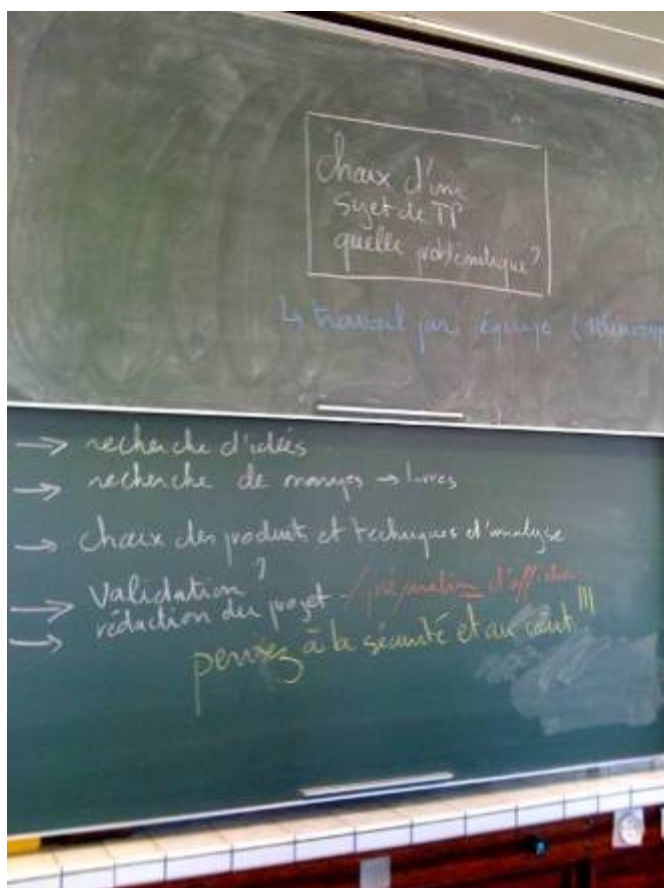 choix d'un
sujet de TP
quelle problématique?
↳ travail par équipe (
→ recherche d'idées
→ recherche de manips → livres
→ choix des produit et techniques d'analyse
→ Validation?
→ rédaction du projet / préparation d'affiche
pensez à la sécurité et au coût!!!